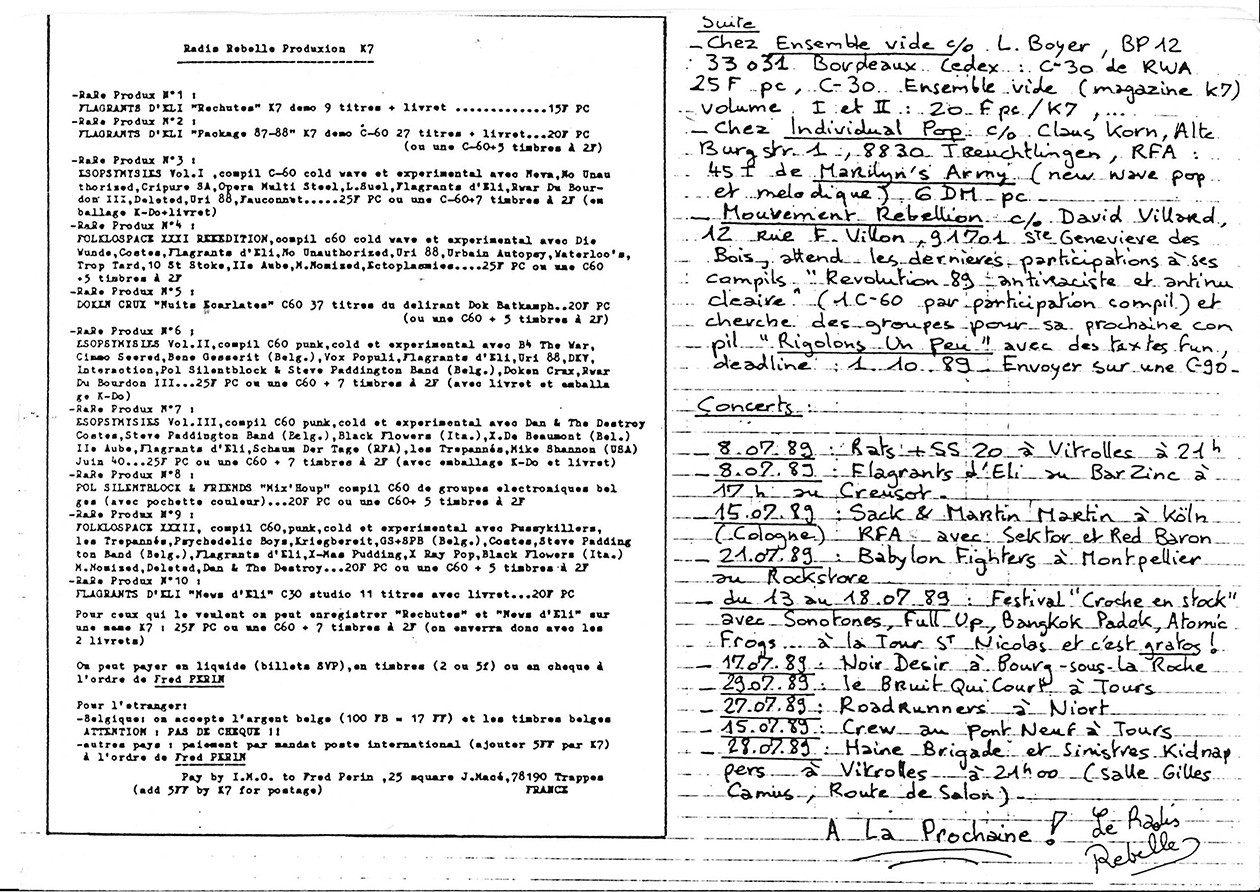 Radis Rebelle Produxion K7
-RaRe Produx N°1 :
FLAGRANTS D'ELI "Rechutes" K7 demo 9 titres + livret .............15F PC
-RaRe Produx N°2 :
FLAGRANTS D'ELI "Package 87-88" K7 demo C-60 27 titres + livret...20F PC
(ou une C-60+5 timbres à 2F)
-RaRe Produx N°3 :
ESOPSYMYSIES Vol.I ,compil C-60 cold wave et experimental avec Neva,No Unau
thorized,Cripure SA,Opera Multi Steel,L.Suel,Flagrants d'Eli,Rwar Du Bour-
don III,Deleted,Uri 88,Fauconnet.....25F PC ou une C-60+7 timbres à 2F (em
ballage K-Do+livret)
-RaRe Produx N°4 :
FOLKLOSPACE XXXI REEEDITION,compil c60 cold wave et experimental avec Die
Wunde,Costes,Flagrants d'Eli,No Unauthorized,Uri 88,Urbain Autopsy,Waterloo's,
Trop Tard,10 St Stoke,IIe Aube,M.Nomized,Ectoplasmies....25F PC ou une C60
+5 timbres à 2F
-RaRe Produx N°5 :
DOKEN CRUX "Nuits Ecarlates" C60 37 titres du delirant Dok Batkamph..20F PC
(ou une C60 + 5 timbres à 2F)
-RaRe Produx N°6 :
ESOPSYMYSIES Vol.II,compil C60 punk,cold et experimental avec B4 The War,
Cimmo Seered,Bene Gesserit (Belg.),Vox Populi,Flagrants d'Eli,Uri 88,DKV,
Interaction,Pol Silentblock & Steve Paddington Band (Belg.),Doken Crux,Rwar
Du Bourdon III...25F PC ou une C60 + 7 timbres à 2F (avec livret et emballa
ge K-Do)
-RaRe Produx N°7 :
ESOPSYMYSIES Vol.III,compil C60 punk,cold et experimental avec Dan & The Destroy
Costes,Steve Paddington Band (Belg.),Black Flowers (Ita.),X.De Beaumont (Bel.)
IIe Aube,Flagrants d'Eli,Schaum Der Tage (RFA),les Trepannés,Mike Shannon (USA)
Juin 40...25F PC ou une C60 + 7 timbres à 2F (avec emballage K-Do et livret)
-RaRe Produx N°8 :
POL SILENTBLOCK & FRIENDS "Mix'Houp" compil C60 de groupes electroniques bel
ges (avec pochette couleur)...20F PC ou une C60+ 5 timbres à 2F
-RaRe Produx N°9 :
FOLKLOSPACE XXXII, compil C60,punk,cold et experimental avec Pussykillers,
les Trepannés,Psychedelic Boys,Kriegbereit,GS+SPB (Belg.),Costes,Steve Padding
ton Band (Belg.),Flagrants d'Eli,X-Mas Pudding,X Ray Pop,Black Flowers (Ita.)
M.Nomized,Deleted,Dan & The Destroy...20F PC ou une C60 + 5 timbres à 2F
-RaRe Produx N°10 :
FLAGRANTS D'ELI "News d'Eli" C30 studio 11 titres avec livret...20F PC
Pour ceux qui le veulent on peut enregistrer "Rechutes" et "News d'Eli" sur
une même K7 : 25F PC ou une C60 + 7 timbres à 2F (on enverra donc avec les
2 livrets)
On peut payer en liquide (billets SVP),en timbres (2 ou 5f) ou en cheque à
l'ordre de Fred PERIN
Pour l'etranger:
-Belgique: on accepte l'argent belge (100 FB = 17 FF) et les timbres belges
ATTENTION : PAS DE CHEQUE !!
-autres pays : paiement par mandat poste international (ajouter 5FF par K7)
à l'ordre de Fred PERIN
Pay by I.M.O. to Fred Perin ,25 square J.Macé,78190 Trappes
(add 5FF by K7 for postage) FRANCE
Suite
- Chez Ensemble vide c/o L. Boyer, BP 12
33 031 Bordeaux Cedex : C-30 de RWA
25 F pc, C-30 Ensemble vide (magazine K7)
volume I et II : 20 F pc / K7, ...
- Chez Individual Pop c/o Claus Korn, Alte
Burgstr. 1, 8830 Treuchtlingen, RFA :
45 T de Marilyn's Army (new wave pop
et melodique) 6 DM pc
- Mouvement Rebellion c/o David Villard,
12 rue F. Villon, 91701 Ste Genevieve des
Bois, attend les dernières participations à ses
compils "Revolution 89 antiraciste et antinu
cleaire" (1 C-60 par participation compil) et
cherche des groupes pour sa prochaine com
pil "Rigolons Un Peu" avec des textes fun,
deadline : 1.10.89 Envoyer sur une C-90-
Concerts :
- 8.07.89 : Rats + SS 20 à Vitrolles à 21h
- 8.07.89 : Flagrants d'Eli au Bar Zinc à
17 h au Creusot -
- 15.07.89 : Sack & Martin Martin à Köln
(Cologne) RFA avec Sektor et Red Baron
- 21.07.89 : Babylon Fighters à Montpellier
au Rockstore
- du 13 au 18.07.89 : Festival "Croche en stock"
avec Sonotones, Full Up, Bangkok Padok, Atomic
Frogs ... à la Tour St Nicolas et c'est gratos !
- 17.07.89 : Noir Desir à Bourg-sous-la Roche
- 29.07.89 : le Bruit Qui Court à Tours
- 27.07.89 : RoadRunners à Niort
- 15.07.89 : Crew au Pont Neuf à Tours
- 28.07.89 : Haine Brigade et Sinistres Kidnap
pers à Vitrolles à 21h00 (salle Gilles
Camus, Route de Salon) -
A La Prochaine ! Le Radis
Rebelle